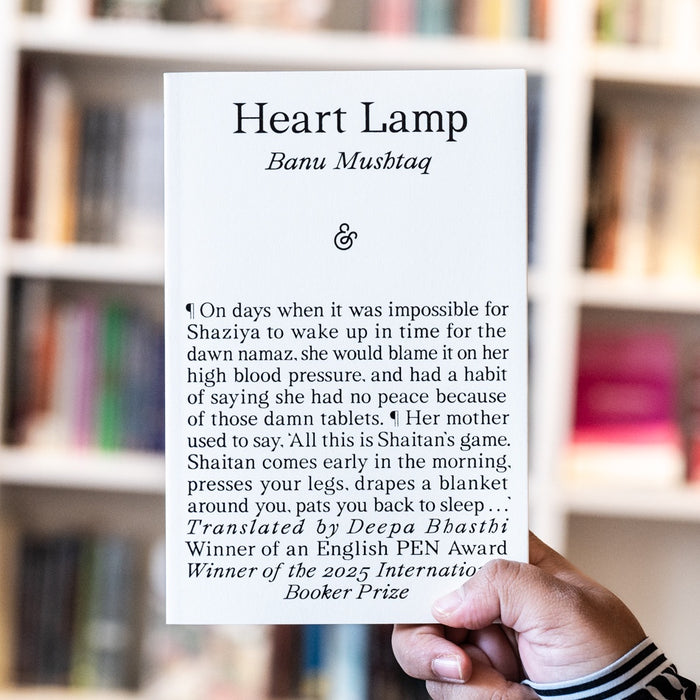 Heart Lamp
Banu Mushtaq
&
¶ On days when it was impossible for
Shaziya to wake up in time for the
dawn namaz, she would blame it on her
high blood pressure, and had a habit
of saying she had no peace because
of those damn tablets. ¶ Her mother
used to say, ‘All this is Shaitan’s game.
Shaitan comes early in the morning,
presses your legs, drapes a blanket
around you, pats you back to sleep . . .’
Translated by Deepa Bhasthi
Winner of an English PEN Award
Winner of the 2025
Booker Prize